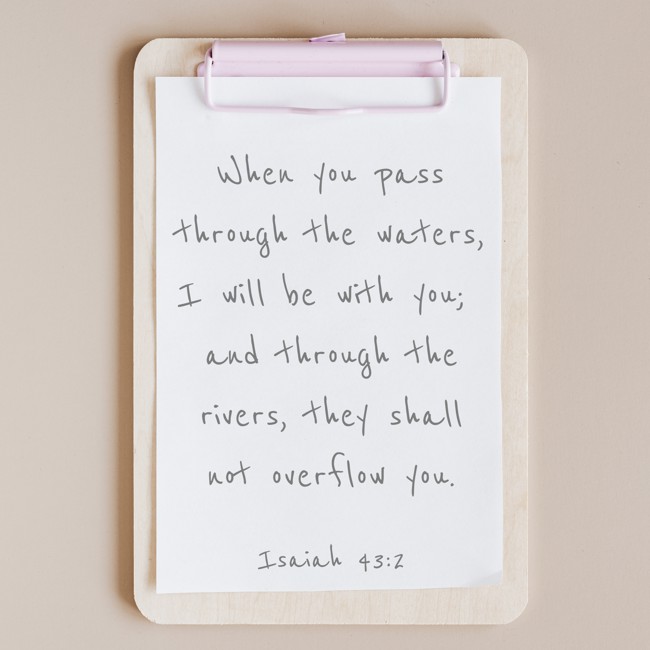 When you pass
through the waters,
I will be with you;
and through the
rivers, they shall
not overflow you.
Isaiah 43:2